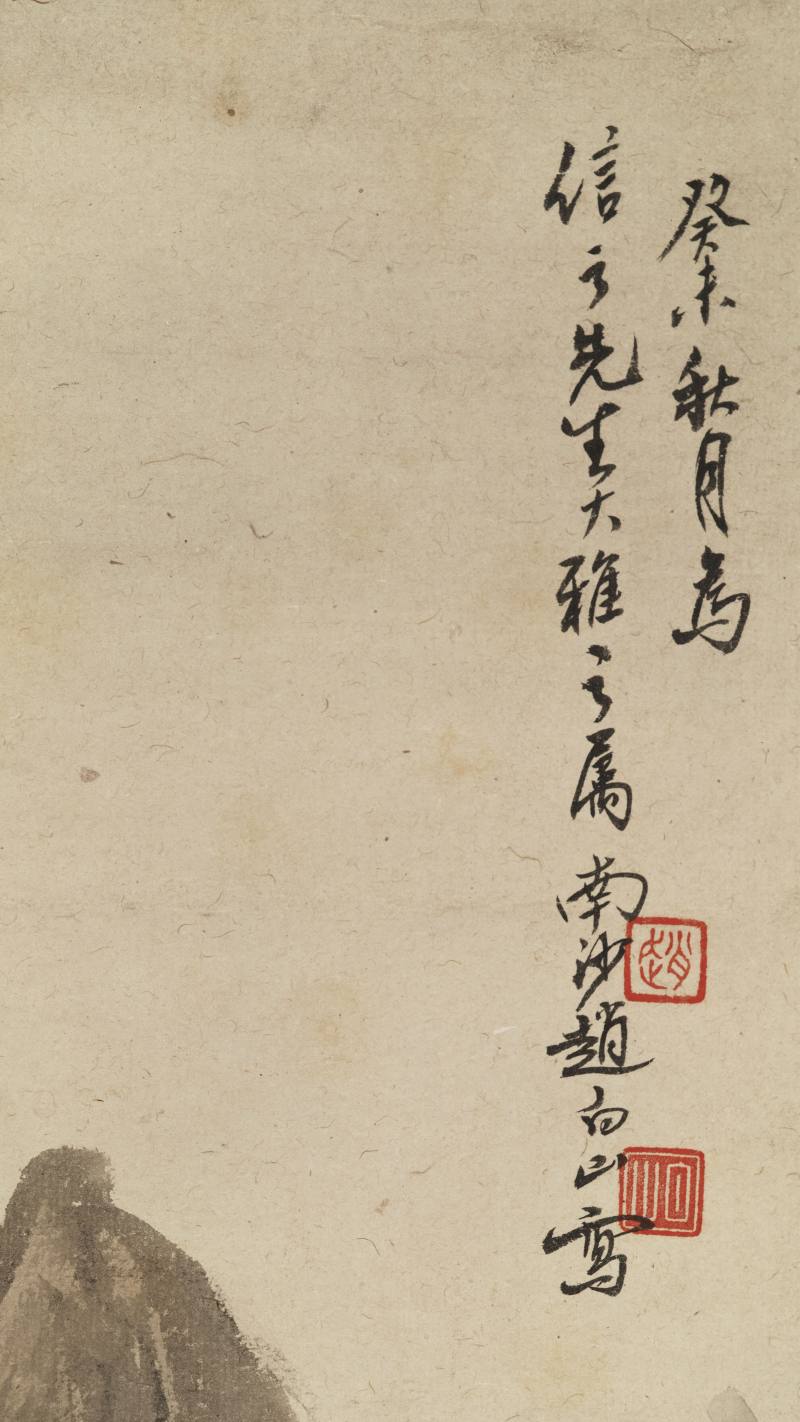 癸未秋月為
信之先生大雅之屬 南沙趙白山寫
趙